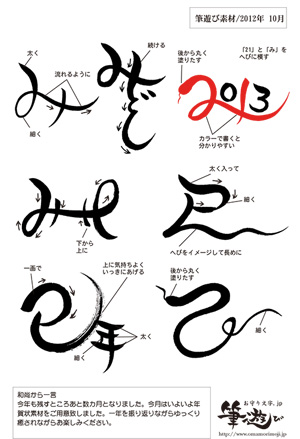 筆遊び素材/2012年 10月
太く
流れるように
細く
続ける
みどし
後から丸く
塗りたす
「21」と「み」を
へびに模す
2013
カラーで書くと
分かりやすい
み
下から
上に
太く入って
細く
へびをイメージして長めに
一画で
上に気持ちよく
いっきにあげる
巳年
細く
太く
後から丸く
塗りたす
細く
和尚から一言
今年も残すところあと数カ月となりました。今月はいよいよ年
賀状素材をご用意致しました。一年を振り返りながらゆっくり
癒されながらお楽しみください。
お守り文字.jp
筆遊び
http://www.omamorimoji.jp/